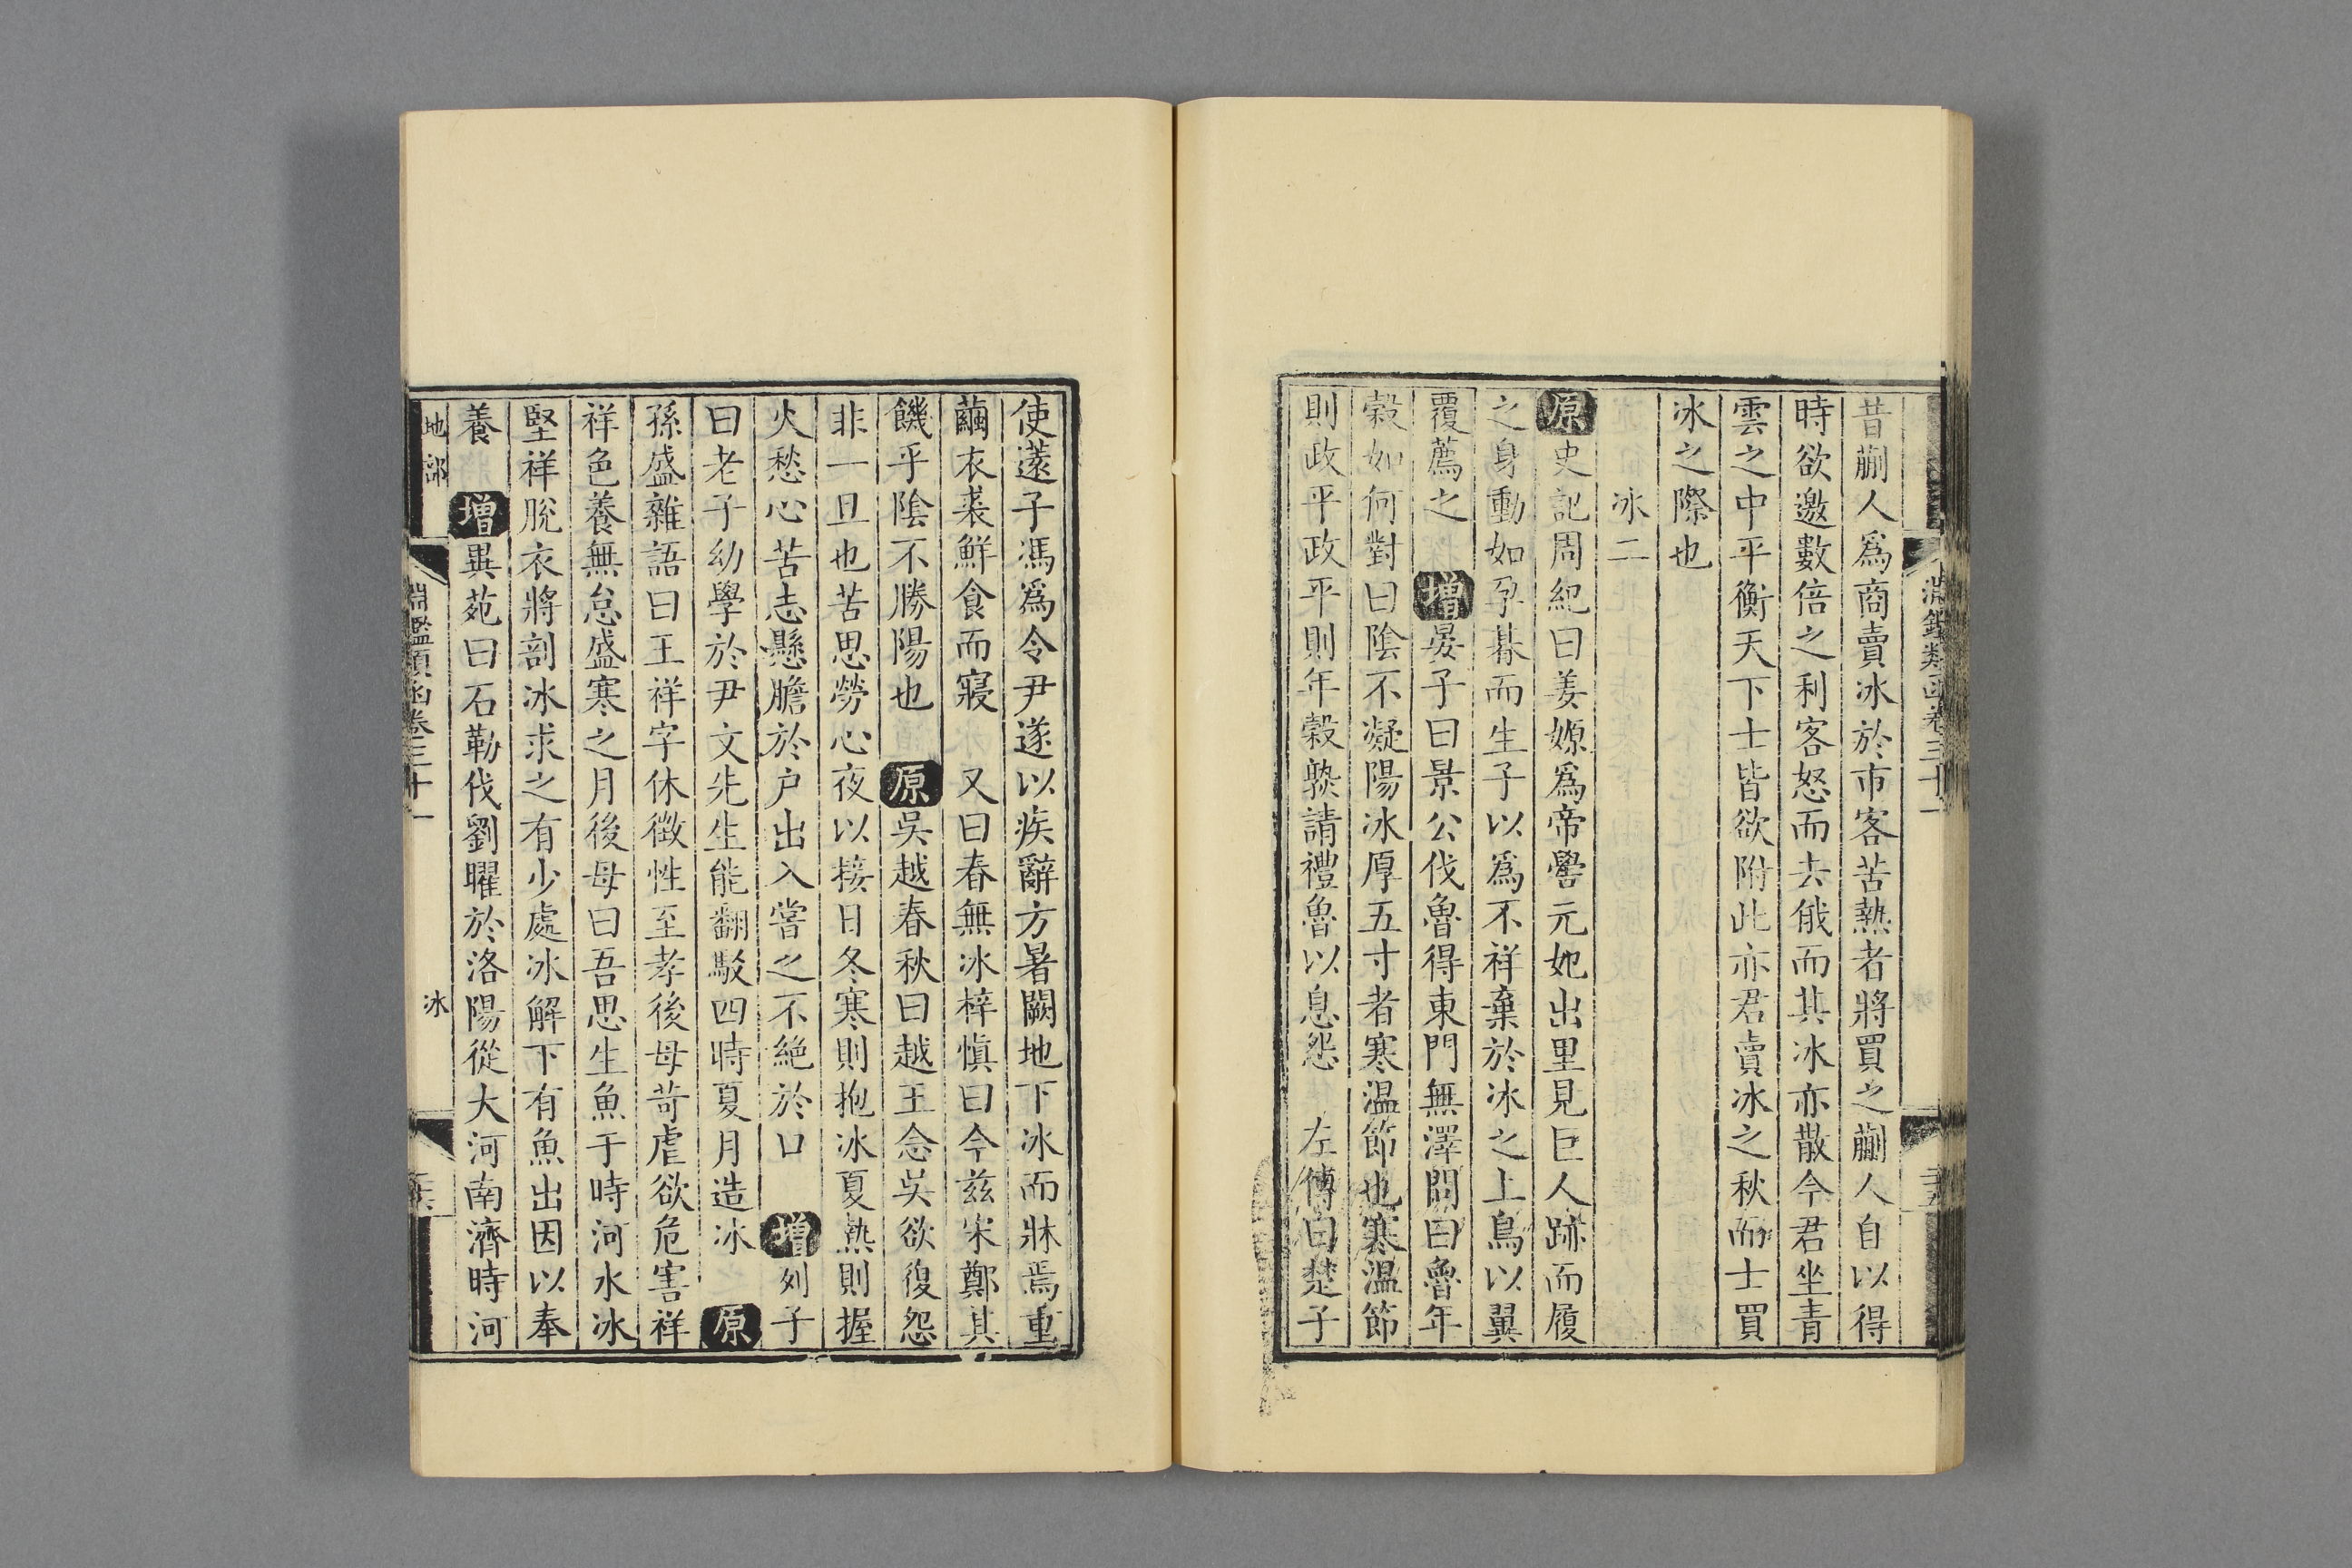 淵鑑類函卷三十一
昔蒯人爲商賣冰於市客苦熱者將買之蒯人自以得
時欲邀數倍之利客怒而去俄而其冰亦散今君坐青
雲之中平衡天下士皆欲附此亦君賣冰之秋而士買
冰之際也
冰二
原史記周紀曰姜嫄爲帝嚳元妃出里見巨人跡而履
之身動如孕朞而生子以爲不祥棄於冰之上鳥以翼
覆薦之 增晏子曰景公伐魯得東門無澤問曰魯年
穀如何對曰陰不凝陽冰厚五寸者寒温節也寒温節
則政平政平則年穀孰請禮魯以息怨 左傳曰楚子
使薳子馮爲令尹遂以疾辭方暑闕地下冰而牀焉重
繭衣裘鮮食而寢 又曰春無冰梓慎曰今兹宋鄭其
饑乎陰不勝陽也 原吳越春秋曰越王念吳欲復怨
非一旦也苦思勞心夜以接日冬寒則抱冰夏熱則握
火愁心苦志懸膽於户出入嘗之不絶於口 增列子
曰老子幼學於尹文先生能翻駁四時夏月造冰 原
孫盛雜語曰王祥字休徵性至孝後母苛虐欲危害祥
祥色養無怠盛寒之月後母曰吾思生魚于時河水冰
堅祥脫衣將剖冰求之有少處冰解下有魚出因以奉
養 增異苑曰石勒伐劉曜於洛陽從大河南濟時河
地部 淵鑑類函卷三十一 冰